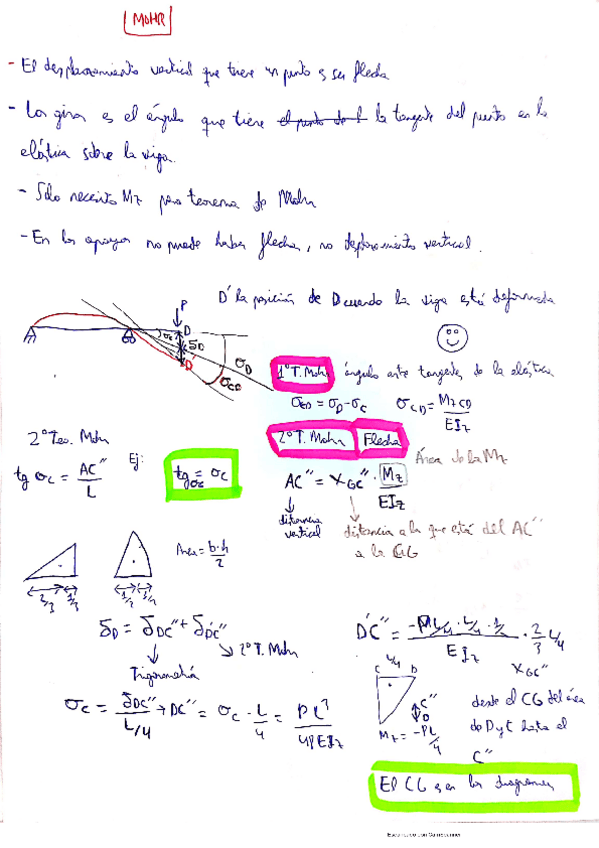 MOHR
- El desplazamiento vertical que tiene un punto es su flecha
- Los giros es el ángulo que tiene el punto de l la tangente del punto en la
elástica sobre la viga.
- Solo necesito Mz para teorema de Mohr
- En los apoyos no puede haber flecha, no desplazamiento vertical.
D' la posición de D cuando la viga está deformada
P
D
σc
δD
D'
σD
σCD
1º T. Mohr ángulo entre tangentes de la elástica
σCD = σD - σC σCD = MzCD / EIz
2º T. Mohr Flecha
Área de la Mz
2º Teo. Mohr
tg σc = AC'' / L
Ej:
tg σc = σc
AC'' = XGC'' · Mz / EIz
distancia vertical
distancia a la que está del AC''
a la CG
Área = b·h / 2
2/3 1/3
1/2 1/2
δD = δDC'' + δD'C''
Trigonometría
2º T. Mohr
σc = δDC'' / L/4 → DC'' = σc · L/4 = PL³ / 48EIz
D'C'' = -PL/4 · L/4 · 1/2 / EIz · 2/3 L/4
XGC''
C L/4 D
C''
D
Mz = -PL/4
desde el CG del área
de D y C hasta el
C''
El CG es en los diagramas
Escaneado con CamScanner